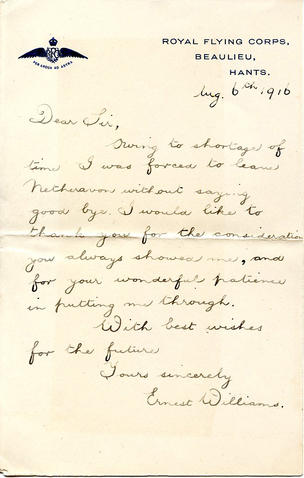 PER ARDUA AD ASTRA
ROYAL FLYING CORPS,
BEAULIEU,
HANTS.
Aug. 6th 1916
Dear Sir,
Owing to shortage of
time I was forced to leave
Netheravon without saying
good bye. I would like to
thank you for the consideration
you always showed me, and
for your wonderful patience
in putting me through.
With best wishes
for the future
Yours sincerely
Ernest Williams.